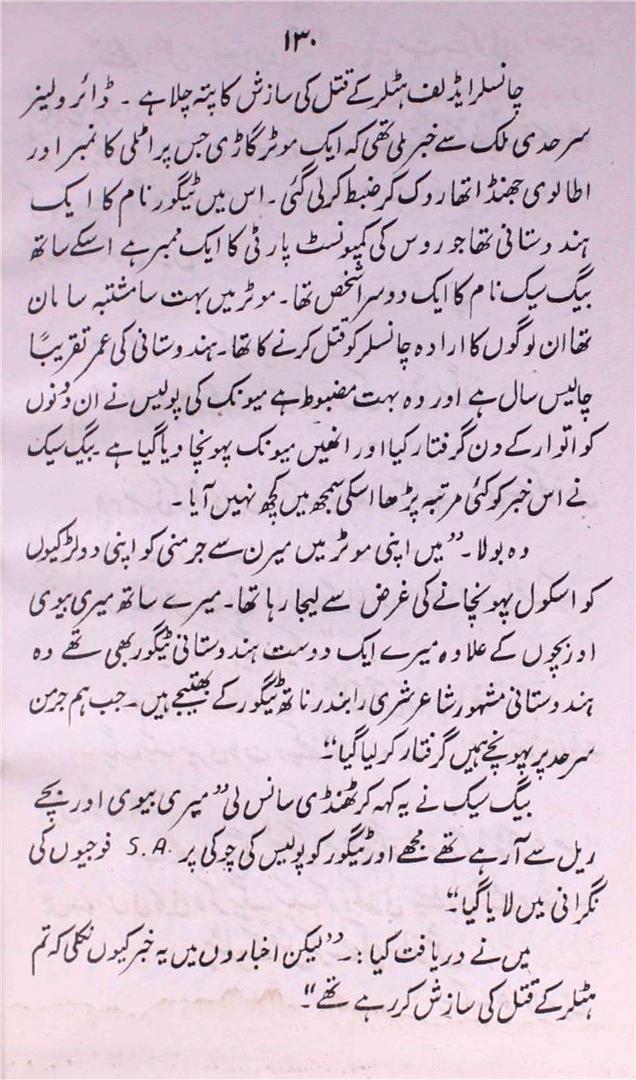 ۱۳۰
چانسلر ایڈلف ہٹلر کے قتل کی سازش کا پتہ چلا ہے ۔ ڈائرولینز
سرحدی ملک سے خبر ملی تھی کہ ایک موٹر گاڑی جس پر اٹلی کا نمبر اور
اطالوی جھنڈا تھا روک کر ضبط کرلی گئی ۔ اس میں ٹیگور نام کا ایک
ہندوستانی تھا جو روس کی کمیونسٹ پارٹی کا ایک ممبر ہے اسکے ساتھ
بیگ سیک نام کا ایک دوسرا شخص تھا۔ موٹر میں بہت سا مشتبہ سامان
تھا ان لوگوں کا ارادہ چانسلر کو قتل کرنے کا تھا۔ ہندوستانی کی عمر تقریباً
چالیس سال ہے اور وہ بہت مضبوط ہے میونک کی پولیس نے ان دونوں
کو اتوار کے دن گرفتار کیا اور انھیں میونک پہونچا دیا گیا ہے بیگ سیک
نے اس خبر کو کئی مرتبہ پڑھا اسکی سمجھ میں کچھ نہیں آیا ۔
وہ بولا ۔ ” میں اپنی موٹر میں میرن سے جرمنی کو اپنی دو لڑکیوں
کو اسکول پہونچانے کی غرض سے لیجا رہا تھا۔ میرے ساتھ میری بیوی
اور بچوں کے علاوہ میرے ایک دوست ہندوستانی ٹیگور بھی تھے وہ
ہندوستانی مشہور شاعر شری رابندر ناتھ ٹیگور کے بھتیجے ہیں ۔ جب ہم جرمن
سرحد پر پہونچے ہمیں گرفتار کر لیا گیا“
بیگ سیک نے یہ کہہ کر ٹھنڈی سانس لی ” میری بیوی اور بچے
ریل سے آرہے تھے مجھے اور ٹیگور کو پولیس کی چوکی پر S.A. فوجیوں کی
نگرانی میں لایا گیا“
میں نے دریافت کیا :۔ ” لیکن اخباروں میں یہ خبر کیوں نکلی کہ تم
ہٹلر کے قتل کی سازش کر رہے تھے“